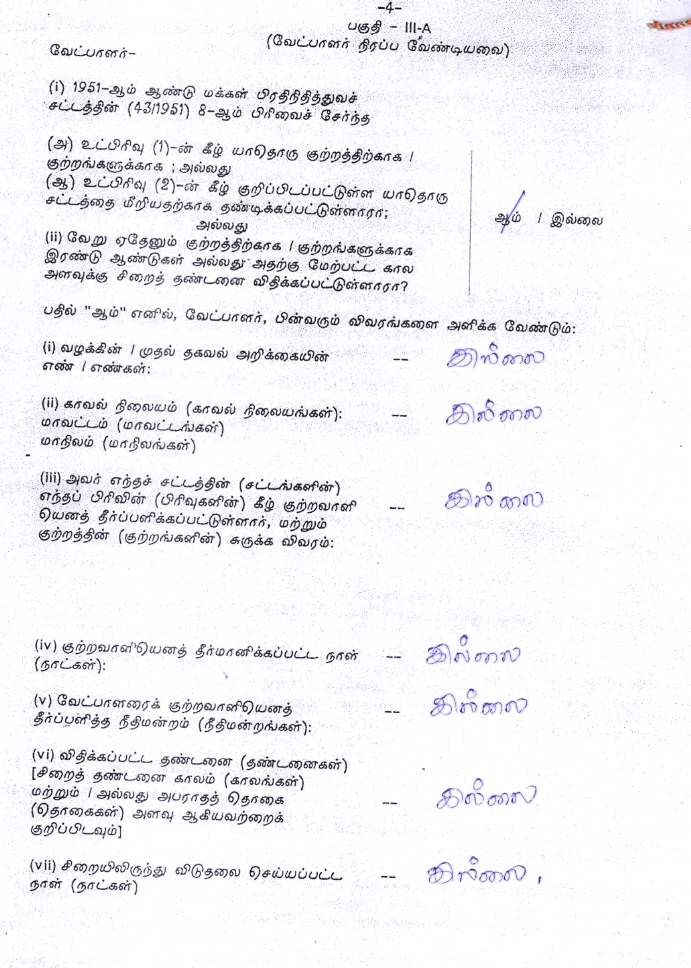 -4-
பகுதி - III-A
(வேட்பாளர் நிரப்ப வேண்டியவை)
வேட்பாளர்-
(i) 1951-ஆம் ஆண்டு மக்கள் பிரதிநிதித்துவச்
சட்டத்தின் (43/1951) 8-ஆம் பிரிவைச் சேர்ந்த
(அ) உட்பிரிவு (1)-ன் கீழ் யாதொரு குற்றத்திற்காக /
குற்றங்களுக்காக ; அல்லது
(ஆ) உட்பிரிவு (2)-ன் கீழ் குறிப்பிடப்பட்டுள்ள யாதொரு
சட்டத்தை மீறியதற்காக தண்டிக்கப்பட்டுள்ளாரா;
அல்லது
ஆம் / இல்லை
(ii) வேறு ஏதேனும் குற்றத்திற்காக / குற்றங்களுக்காக
இரண்டு ஆண்டுகள் அல்லது அதற்கு மேற்பட்ட கால
அளவுக்கு சிறைத் தண்டனை விதிக்கப்பட்டுள்ளாரா?
பதில் "ஆம்" எனில், வேட்பாளர், பின்வரும் விவரங்களை அளிக்க வேண்டும்:
(i) வழக்கின் / முதல் தகவல் அறிக்கையின் -- இல்லை
எண் / எண்கள்:
(ii) காவல் நிலையம் (காவல் நிலையங்கள்): -- இல்லை
மாவட்டம் (மாவட்டங்கள்)
மாநிலம் (மாநிலங்கள்)
(iii) அவர் எந்தச் சட்டத்தின் (சட்டங்களின்)
எந்தப் பிரிவின் (பிரிவுகளின்) கீழ் குற்றவாளி -- இல்லை
யெனத் தீர்ப்பளிக்கப்பட்டுள்ளார், மற்றும்
குற்றத்தின் (குற்றங்களின்) சுருக்க விவரம்:
(iv) குற்றவாளியெனத் தீர்மானிக்கப்பட்ட நாள் -- இல்லை
(நாட்கள்):
(v) வேட்பாளரைக் குற்றவாளியெனத் -- இல்லை
தீர்ப்பளித்த நீதிமன்றம் (நீதிமன்றங்கள்):
(vi) விதிக்கப்பட்ட தண்டனை (தண்டனைகள்)
[சிறைத் தண்டனை காலம் (காலங்கள்)
மற்றும் / அல்லது அபராதத் தொகை -- இல்லை
(தொகைகள்) அளவு ஆகியவற்றைக்
குறிப்பிடவும்]
(vii) சிறையிலிருந்து விடுதலை செய்யப்பட்ட -- இல்லை.
நாள் (நாட்கள்)